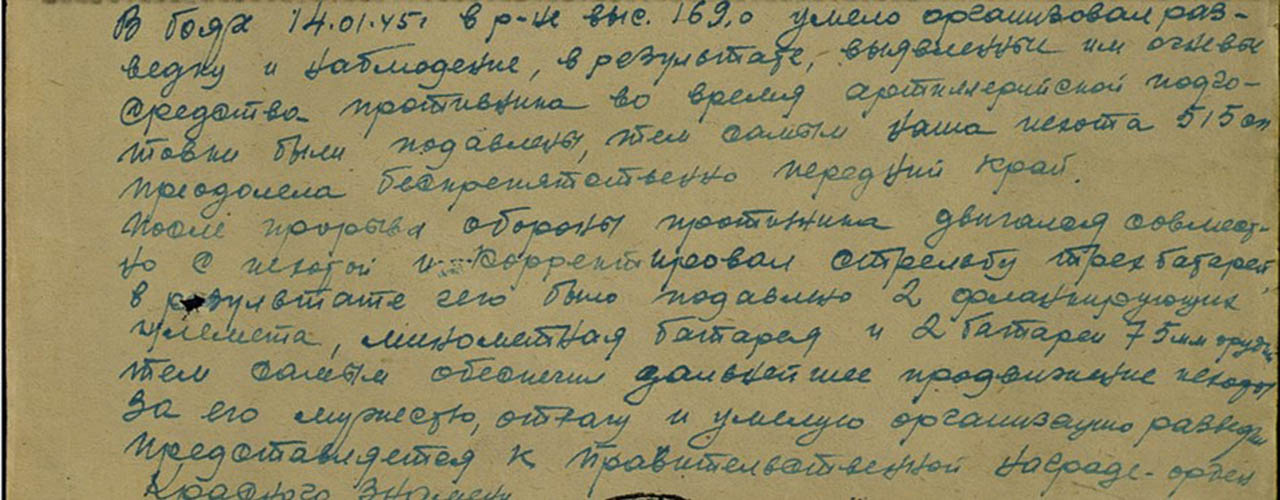 В боях 14.01.45г в р-не выс. 169,0 умело организовал раз-
ведку и наблюдение, в результате, выявленные им огневые
средства противника во время артиллерийской подго-
товки были подавлены, тем самым наша пехота 515 сп
преодолела беспрепятственно передний край.
После прорыва обороны противника двигался совмест-
но с пехотой и корректировал стрельбу трех батарей,
в результате чего было подавлено 2 фланкирующих
пулемета, минометная батарея и 2 батареи 75 мм орудий
тем самым обеспечил дальнейшее продвижение пехоты
За его мужество, отвагу и умелую организацию разведки
представляется к правительственной награде - орден
Красного Знамени